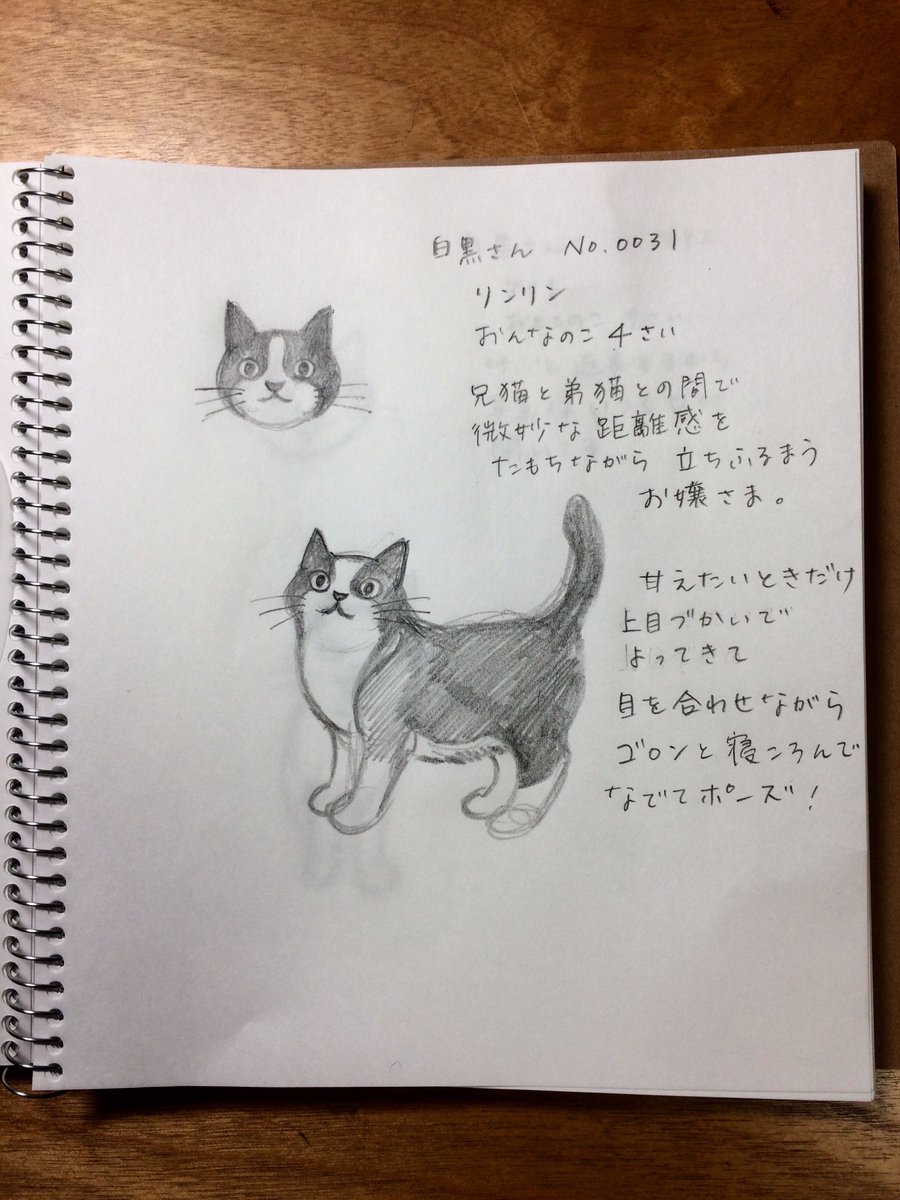 白黒さん No.0031
リンリン
おんなのこ 4さい
兄猫と弟猫との間で
微妙な距離感を
たもちながら 立ちふるまう
お嬢さま。
甘えたいときだけ
上目づかいで
よってきて
目を合わせながら
ゴロンと寝ころんで
なでてポーズ!